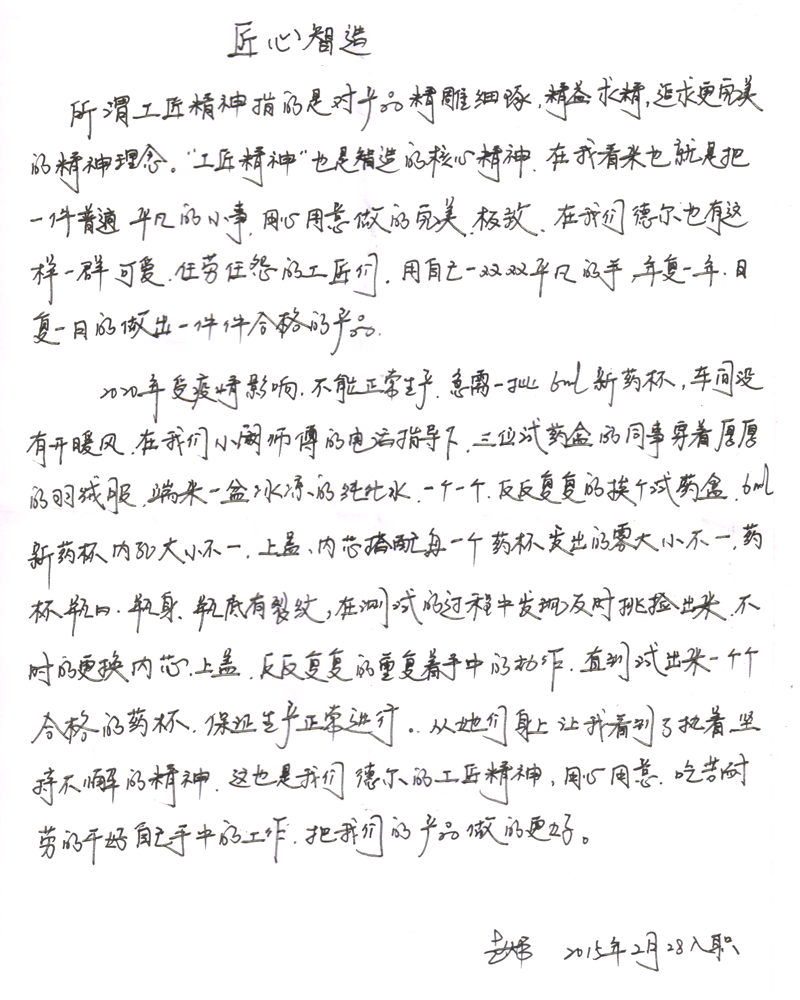 匠心智造
所谓工匠精神指的是对产品精雕细琢，精益求精，追求更完美
的精神理念。"工匠精神"也是智造的核心精神、在我看来也就是把
一件普通平凡的小事，用心用意做的完美、极致、在我们德尔也有这
样一群可爱、任劳任怨的工匠们，用自己一双双平凡的手，年复一年、日
复一日的做出一件件合格的产品.
2020年受疫情影响、不能正常生产、急需一批6ml新药杯，车间没
有开暖风、在我们小阁师傅的电话指导下、三位试药盒的同事穿着厚厚
的羽绒服、端来一盆冰凉的纯化水、一个一个、反反复复的挨个试药盒、6ml
新药杯内孔大小不一、上盖、内芯搭配每一个药杯发出的雾大小不一、药
杯瓶口、瓶身、瓶底有裂纹，在测试的过程中发现及时挑捡出来、不
时的更换内芯、上盖、反反复复的重复着手中的动作、直到试出来一个个
合格的药杯、保证生产正常进行。从她们身上让我看到了执着坚
持不懈的精神、这也是我们德尔的工匠精神，用心用意、吃苦耐
劳的干好自己手中的工作、把我们的产品做的更好。
2015年2月28入职